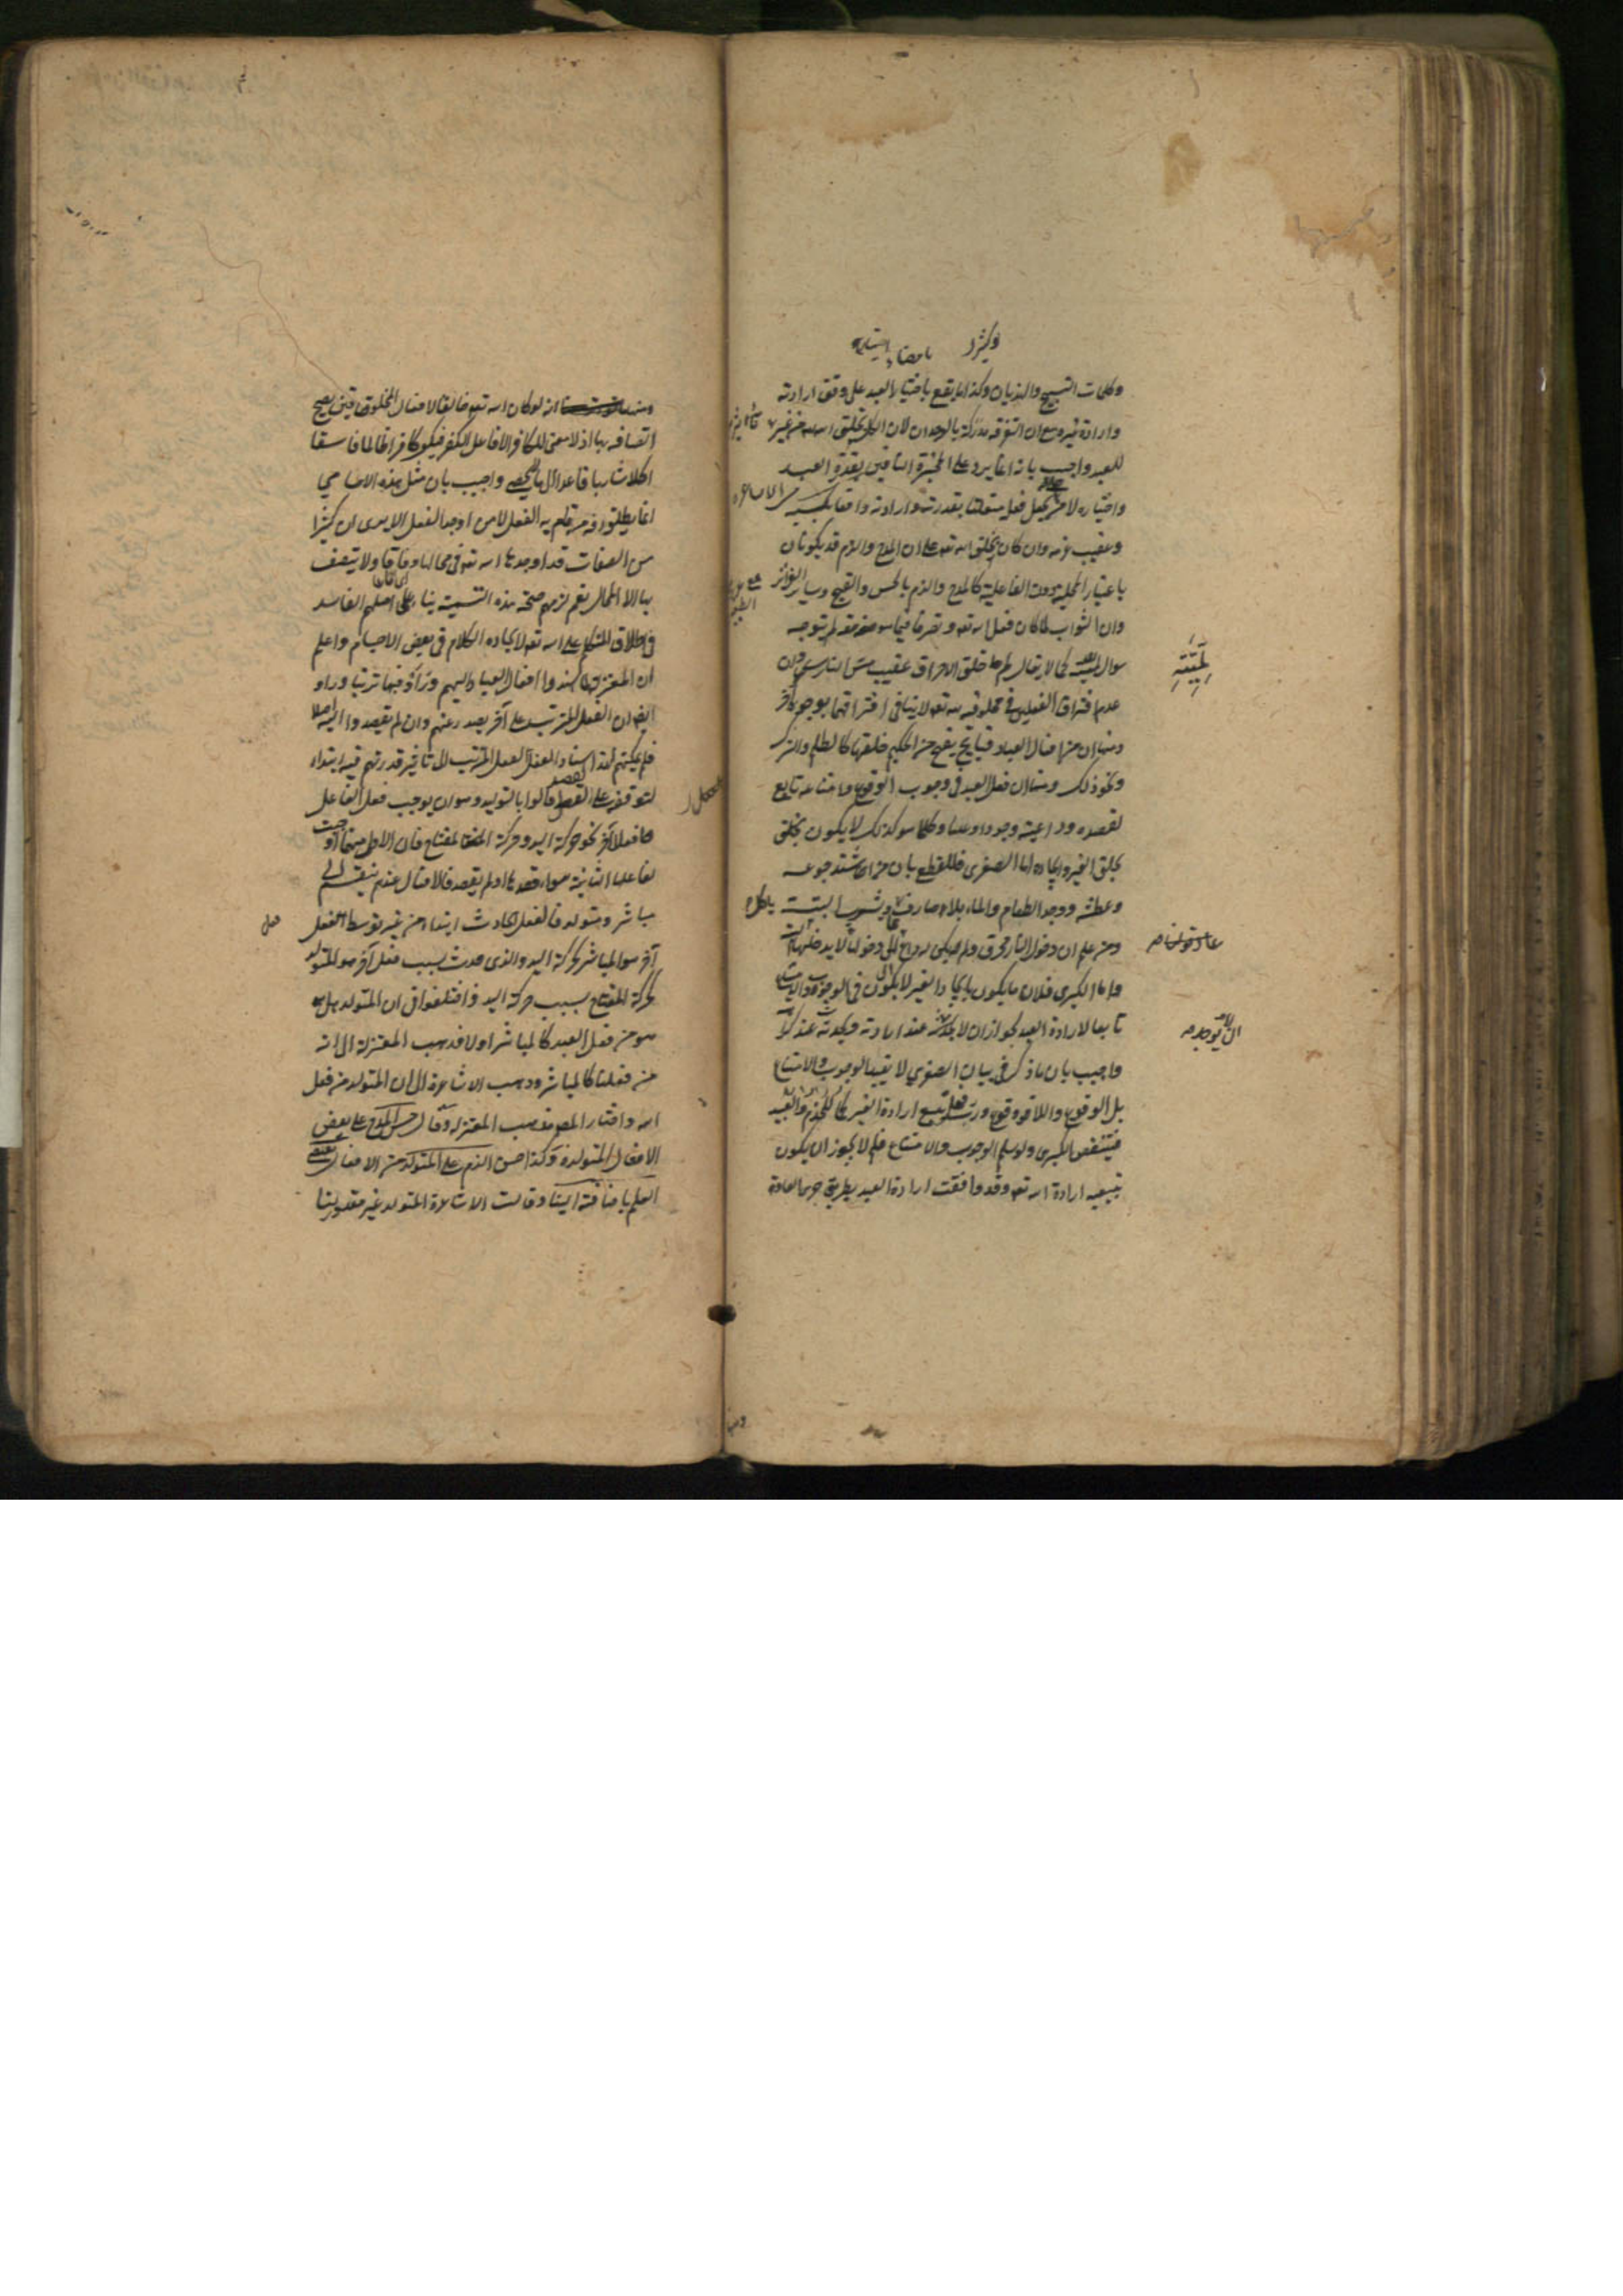 وكلمات التسبيح والهذيان وكذا ما يقع باختيار العبد على وفق ارادته
وارادة غيره مع ان التفرقة مدركة بالوجدان لان الكل بخلق الله من غير
للعبد واجيب بانه انما يرد على المجبرة النافين لقدرة العبد
واختياره لا من يجعل فعله متعلقا بقدرته وارادته واقعا بكسبه
وعقيب عزمه وان كان بخلق الله تعه على ان المدح والذم قد يكونان
باعتبار المحلية دون الفاعلية كالمدح والذم بالحسن والقبح وسائر الغرائز
وان الثواب لما كان فعل الله تعه وتصرفا فيما هو حقه لم يتوجه
سوال لميته كما لا يقال لم خلق الاحراق عقيب مس النار
عدم افتراق الفعلين في المخلوقية لله تعه لا ينافي افتراقهما بوجوه آخر
ومنها ان من افعال العباد قبايح يقبح من الحكيم خلقها كالظلم والشرك
ونحو ذلك ومنها ان فعل العبد في وجوب الوقوع وامتناعه تابع
لقصده وداعيته وجودا وعدما وكلما هو كذلك لا يكون بخلق
بخلق الغير وايجاده اما الصغرى فللقطع بان من اشتد جوعه
وعطشه ووجد الطعام والماء بلا صارف ياكل ويشرب البتة
ومن علم ان دخول النار محرق ولم يكن له داع الى دخولها لا يدخلها البتة
واما الكبرى فلان ما يكون بايجاد الغير لا يكون في الوجوب والامتناع
تابعا لارادة العبد لجواز ان لا يحدثه عند ارادته ويحدثه عند كراهته
واجيب بان ما ذكر في بيان الصغرى لا يفيد الوجوب والامتناع
بل الوقوع واللاوقوع ورب فعل يتبع ارادة الغير كما للخدم والعبيد
فينتقض الكبرى ولو سلم الوجوب والامتناع فلم لا يجوز ان يكون
بتبعيه ارادة الله تعه وقد وافقت ارادة العبد بطريق جري العادة
لِمِّيَّتِهِ
ومنها انه لو كان الله تعه خالقا لافعال المخلوقات يصح
اتصافه بها اذ لا معنى للكافر الا فاعل الكفر فيكون كافرا ظالما فاسقا
اكلا شاربا قاعدا الى ما لا يحصى واجيب بان مثل هذه الاسامي
انما يطلق على من قام به الفعل لا من اوجد الفعل الا يرى ان كثيرا
من الصفات قد اوجدها الله تعه في محالها وفاقا ولا يتصف
بها الا المحال نعم لزمهم صحة هذه التسمية بناء على اصلهم الفاسد
في اطلاق المتكلم على الله تعه لايجاده الكلام في بعض الاجسام واعلم
ان المعتزلة لما اسندوا افعال العباد اليهم وراوا فيها ترتبا وراوا
ايضا ان الفعل المترتب على آخر يصدر عنهم وان لم يقصدوا اليه اصلا
فلم يمكنهم لهذا اسناد الفعل المترتب الى تاثير قدرتهم فيه ابتداء
لتوقفه على القصد قالوا بالتوليد وهو ان يوجب فعل لفاعله
فعلا آخر نحو حركة اليد وحركة المفتاح فان الاولى منهما اوجبت
لفاعلها الثانية سواء قصدها او لم يقصد فالافعال عندهم ينقسم الى
مباشر ومتولد فالفعل الحادث ابتداء من غير توسط فعل
آخر هو المباشر كحركة اليد والذي حدث بسبب فعل آخر هو المتولد
كحركة المفتاح بسبب حركة اليد واختلفوا في ان المتولد هل
هو من فعل العبد كالمباشر او لا فذهب المعتزلة الى انه
من فعلنا كالمباشر وذهب الاشاعرة الى ان المتولد من فعل
الله واختار المص مذهب المعتزلة وقال حسن المدح على بعض
الافعال المتولده وكذا حسن الذم على المتولد من الافعال يقتضي
العلم باضافته الينا وقالت الاشاعرة المتولد غير مقدور لنا